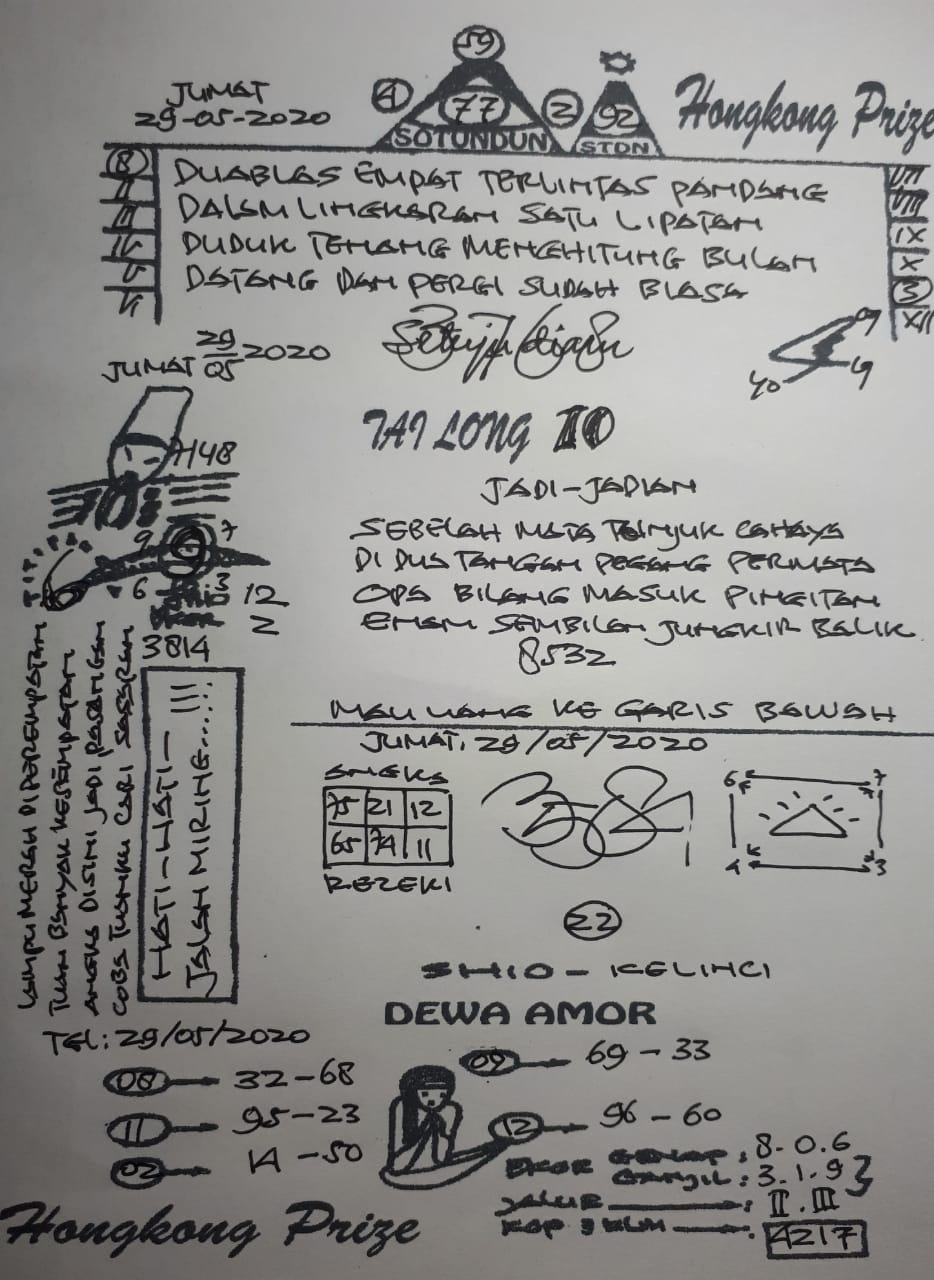 59
JUMAT
29-05-2020
4
77
2
92
Hongkong Prize
SOTUNDUN
STDN
8
II
III
IV
V
VI
DUABLAS EMPAT TERLINTAS PANDANG
DALAM LINGKARAN SATU LIPATAN
DUDUK TENANG MENGHITUNG BULAN
DATANG DAN PERGI SUDAH BIASA
VII
VIII
IX
X
3
XII
JUMAT 29/05 2020
TAI LONG 10
7148
JADI-JADIAN
SEBELAH MATA TUNJUK CAHAYA
DI DUA TANGAN PEGANG PERMATA
OPA BILANG MASUK PINGITAN
ENAM SEMBILAN JUNGKIR BALIK
8532
9 7
6 3
SHIO 12
EKOR 2
3814
LAMPU MERAH DI PEREMPATAN
TUAN BANYAK KESEMPATAN
ANGKA DISINI JADI PASANGAN
COBA TUANKU CARI SASARAN
HATI-HATI- !!!
JALAN MIRING......
MAU UANG KE GARIS BAWAH
JUMAT, 29/05/2020
ANGKA
75 21 12
65 74 11
REZEKI
6 7
4 3
22
SHIO - KELINCI
DEWA AMOR
TGL: 29/05/2020
08 32-68
11 95-23
02 14-50
09 69-33
12 96-60
EKOR GENAP : 8.0.6
GANJIL : 3.1.9
JALUR : II.III
KOP 3 KLM : 4217
Hongkong Prize